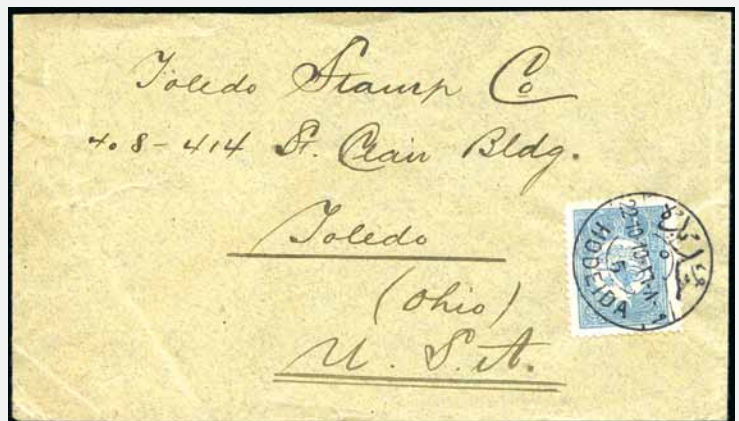 Toledo Stamp Co
408-414 St. Clair Bldg.
Toledo
(Ohio)
U.S.A.
HODEIDA
5